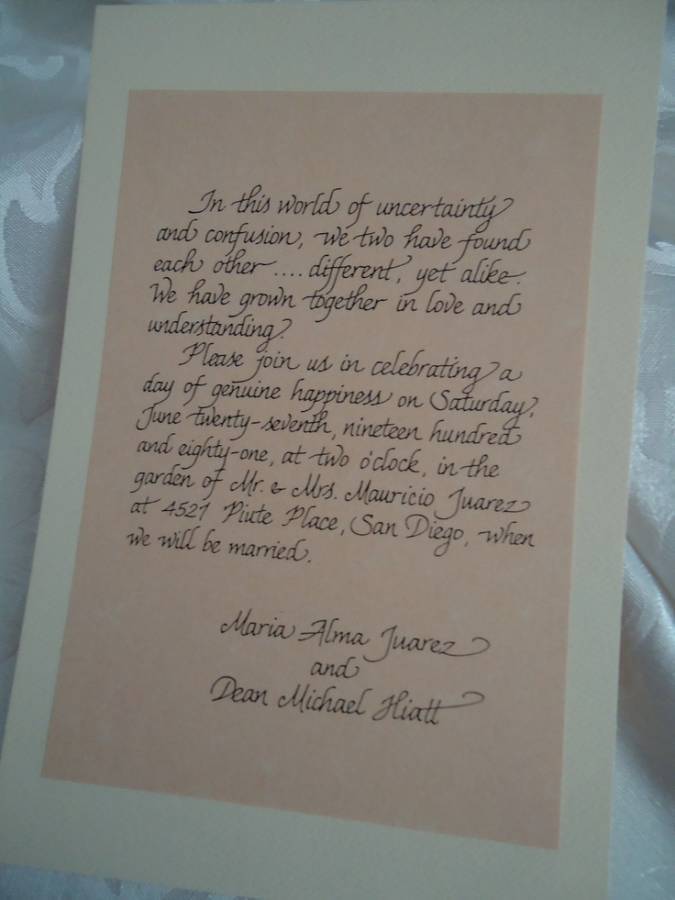 In this world of uncertainty
and confusion, we two have found
each other .... different, yet alike.
We have grown together in love and
understanding.
Please join us in celebrating a
day of genuine happiness on Saturday,
June twenty-seventh, nineteen hundred
and eighty-one, at two o'clock, in the
garden of Mr. & Mrs. Mauricio Juarez
at 4527 Piute Place, San Diego, when
we will be married.
Maria Alma Juarez
and
Dean Michael Hiatt